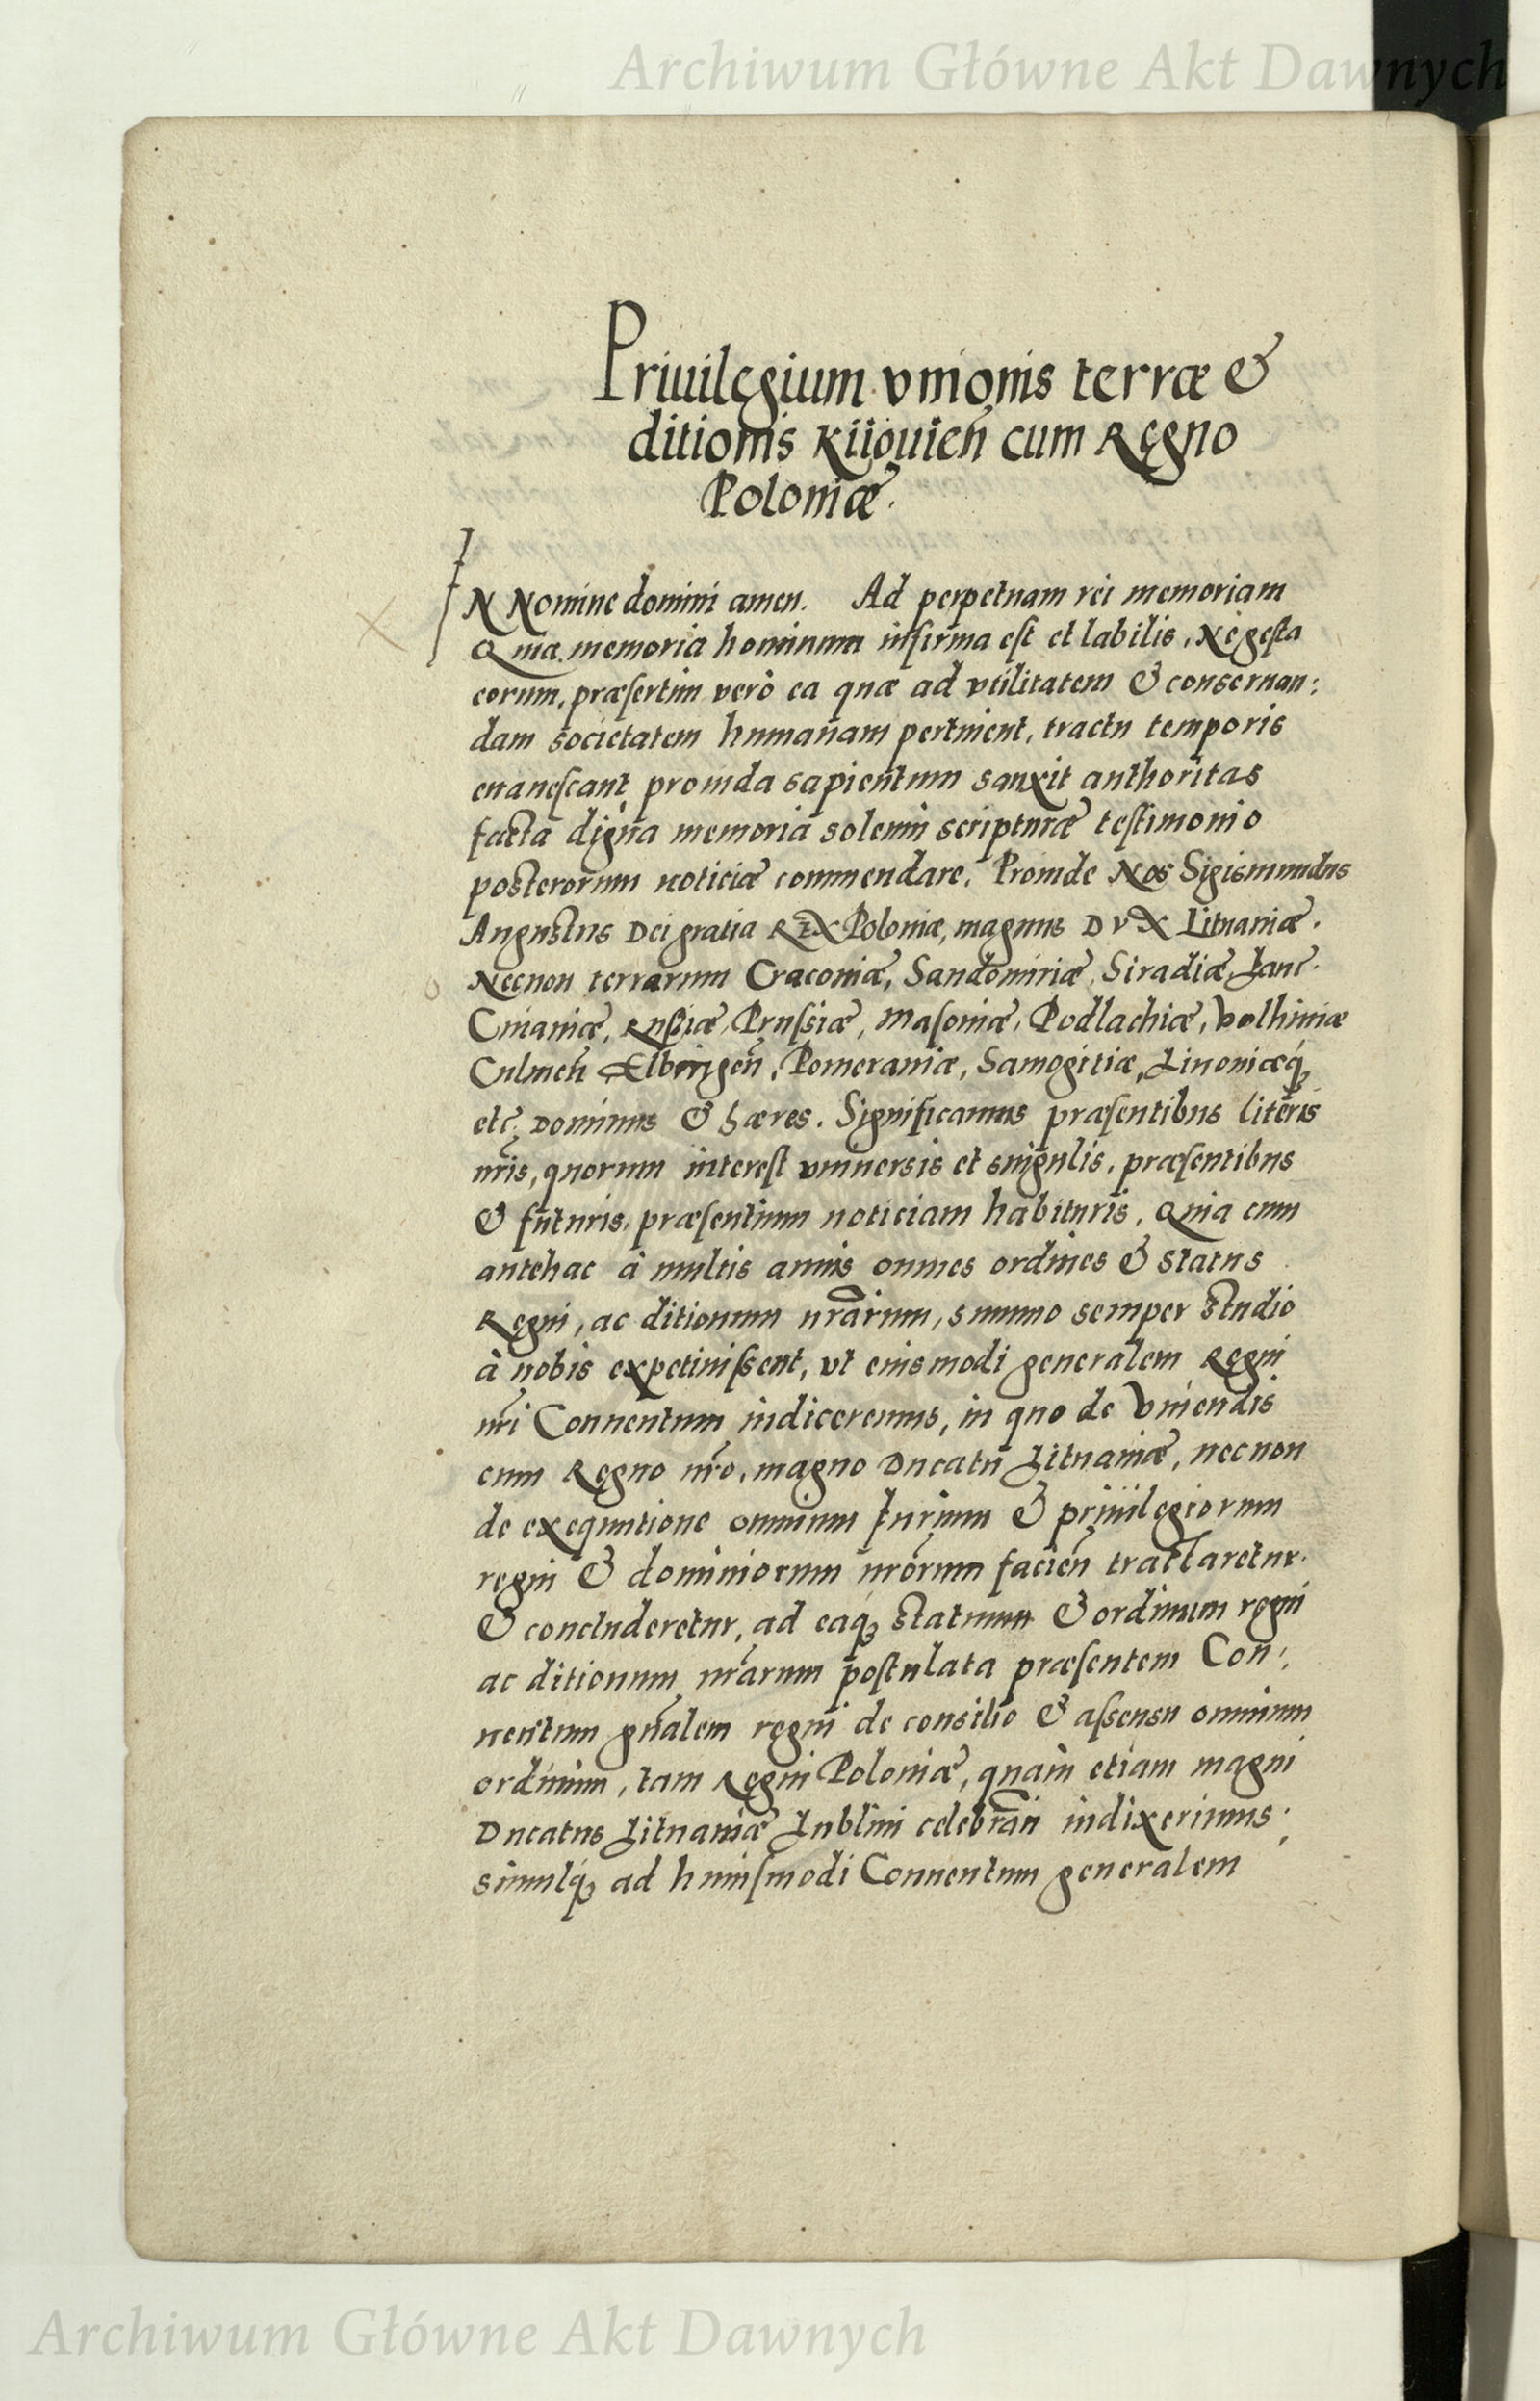 Archiwum Główne Akt Dawnych
Priuilegium vnionis terræ &
ditionis Kiiouień cum Regno
Poloniæ.
IN Nomine domini amen. Ad perpetuam rei memoriam
Quia memoria hominum infirma est et labilis, Ne gesta
eorum, præsertim verò ea quæ ad vtilitatem & conseruan:
dam societatem humanam pertinent, tractu temporis
euanescant, prouida sapientum sanxit authoritas
facta digna memoria solenni scripturæ testimonio
posterorum noticiæ commendare. Proinde Nos Sigismundus
Augustus Dei gratia REX Poloniæ, magnus DVX Lituaniæ.
Necnon terrarum Cracouiæ, Sandomiriæ, Siradiæ, Lanc.
Cuiauiæ, Russiæ, Prussiæ, Masouiæ, Podlachiæ, Volhiniæ
Culmeń Elbingeń, Pomeraniæ, Samogitiæ, Liuoniæq́;
etc̃ Dominus & hæres. Significamus præsentibus literis
nr̃is, quorum interest vniuersis et singulis, præsentibus
& futuris, præsentium noticiam habituris, Quia cum
antehac à multis annis omnes ordines & status
Regni, ac ditionum nrãrum, summo semper studio
à nobis expetiuissent, vt eiusmodi generalem Regni
nr̃i Conuentum indiceremus, in quo de Vniendis
cum Regno nr̃o, magno Ducatu Lituaniæ, necnon
de exequutione omnium Iurium & priuilegiorum
regni & dominiorum nrõrum facień tractaretur.
& concluderetur, ad eaq́; statuum & ordinum regni
ac ditionum nrãrum postulata præsentem Con:
uentum gñalem regni de consilio & assensu omnium
ordinum, tam Regni Poloniæ, quàm etiam magni
Ducatus Lituaniæ Lublini celebrañ indixerimus:
simulq́; ad huiusmodi Conuentum generalem
Archiwum Główne Akt Dawnych